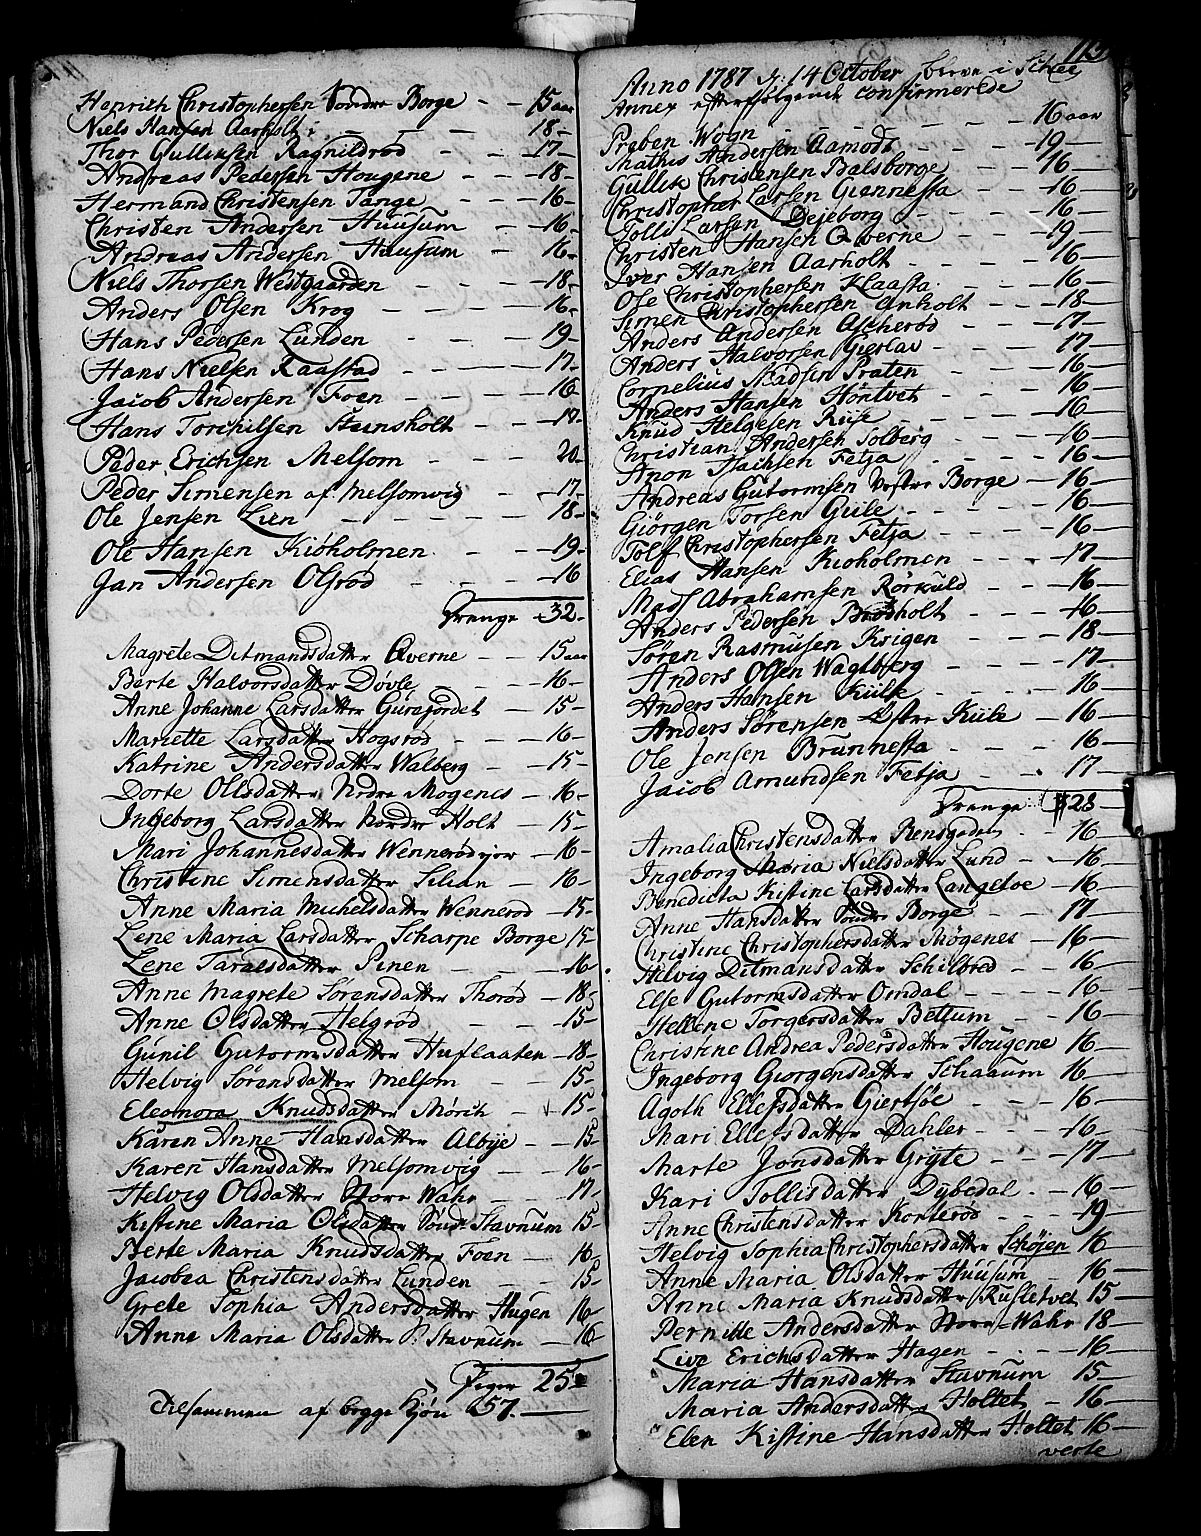 Henrich Christophersen Søndre Borge - - 15 aar
Niels Hansen Aarholt - - - 18 -
Thor Gulliksen Ragnildrød - - - 17 -
Andreas Pedersen Hougene - - - 18 -
Hermand Christensen Tange - - - 16 -
Christen Andersen Huusum - - 16 -
Andreas Andersen Huusum - - 16 -
Niels Thorsen Westgaarden - - - 18 -
Anders Olsen Krog - - - 16 -
Hans Pedersen Lunden - - - 19 -
Hans Nielsen Raastad - - - 17 -
Jacob Andersen Foen - - - 16
Hans Torchilsen Steinsholt - - - 17 -
Peder Erichsen Melsom - - - 20 -
Peder Simensen af Melsomvig - - 17 -
Ole Jensen Lien - - - 18 -
Ole Hansen Kiøholmen - - - 19 -
Jan Andersen Olsrød - - - 16
Drenge - 32 -
Magrete Ditmandsdatter Qverne - - 15 aar
Berte Halvorsdatter Døvle - - - 16 -
Anne Johanne Larsdatter Guragordet - 15 -
Mariette Larsdatter Hogsrød - - - 16 -
Katrine Andersdatter Walberg - - 15 -
Dorte Olsdatter Nordre Møgenes - 16 -
Ingeborg Larsdatter Nordre Holt - 15 -
Mari Johannesdatter Wennerød - 16 -
Christine Simensdatter Selian - 16 -
Anne Maria Michelsdatter Wennerød - 15 -
Lene Maria Larsdatter Scharpe Borge 15 -
Lene Taralsdatter Pinen - - 16
Anne Magrete Sørensdatter Thorød - 18 -
Anne Olsdatter Helgrød - - 15 -
Gunil Gutormsdatter Huflaaten - 18 -
Helvig Sørensdatter Melsom - - 15 -
Eleonora Knudsdatter Mørch - - 15 -
Karen Anne Hansdatter Albye - - 15 -
Karen Hansdatter Melsomvig - - 16 -
Helvig Olsdatter Store Wahr - - 17 -
Kistine Maria Olsdatter Sønd. Stavnum 15 -
Berte Maria Knudsdatter Foen - 16 -
Jacobaa Christensdatter Lunden - - 15 -
Grete Sophia Andersdatter Hugen 16 -
Anne Maria Olsdatter S. Stavnum - 16 -
Piger 25
Tilsammen af begge Kiøn 57. -
113
Anno 1787 d. 14 October bleve i Schee
Annex efterfølgende confirmerede
Preben Wogn - - - 16 aar
Mathis Andersen Aamodt - - - 19 -
Gullik Christensen Balsborge - - 16 -
Christopher Larsen Giennesta - - 16 -
Jolli Larsen Dejeborg - - - 16 -
Christen Hansen Qverne - - - 19 -
Iver Hansen Aarholt - - - 16 -
Ole Christophersen Klaasta - - - 16 -
Simen Christophersen Anholt - - - 18 -
Anders Andersen Ascherød - - - 17 -
Anders Halvorsen Gierlav - - - 17 -
Cornelius Madsen Praten - - - 16 -
Anders Hansen Hontvet - - - 16 -
Knud Helgesen Riise - - - 16 -
Christian Andersen Solberg - - - 16 -
Anon Isachsen Fetja - - - 16 -
Andreas Gutormsen Vestre Borge - 16 -
Giørgen Torsen Giile - - - 16 -
Tolf Christophersen Fetja - - - 16 -
Elias Hansen Kioholmen - - - 17 -
Mads Abrahamsen Rørkuld - - - 16 -
Anders Pedersen Brødholt - - - 16 -
Søren Rasmusen Krigen - - - 18 -
Anders Olsen Waglberg - - - 17 -
Anders Hansen Kiile - - - 16 -
Anders Sørensen Østre Kiile - 16 -
Ole Jensen Brunnesta - - - 16 -
Jacob Amundsen Fetja - - - 17 -
Drenge 28 -
Amalia Christensdatter Rensgodet - 16 -
Ingeborg Maria Nielsdatter Lund - - 16 -
Benedicta Kistine Larsdatter Langeloe - 16 -
Anne Hansdatter Søndre Borge - - 17 -
Christine Christophersdatter Møgenes - 16 -
Helvig Ditmansdatter Schilbred - - 16 -
Else Gutormsdatter Omdal - - - 16 -
Hellene Torgersdatter Bettum - - 16 -
Christine Andrea Pedersdatter Hougene 16 -
Ingeborg Giorgensdatter Schaaum 16 -
Agoth Ellefsdatter Giertsøe - - 16 -
Mari Ellefsdatter Dahler - - - 16 -
Marte Jonsdatter Gryte - - - 17 -
Kari Tollisdatter Dybedal - - 16 -
Anne Christensdatter Korterød - - 19 -
Helvig Sophia Christophersdatter Schøjen 16 -
Anne Maria Olsdatter Huusum - - 16 -
Anne Maria Knudsdatter Rusletvet 15 -
Pernille Andersdatter Store Wahr 18 -
Live Erichsdatter Hagen - - - 16 -
Maria Hansdatter Stavnum 15 -
Maria Andersdatter Holtet - 16 -
Elen Kistine Hansdatter Holtet 16 -
verte